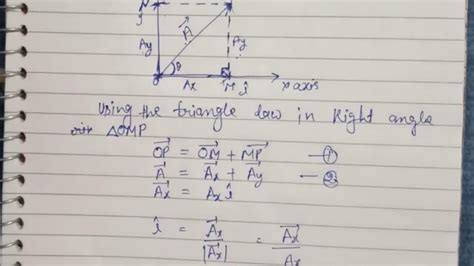 N
ĵ
Ay
A⃗
Ay
θ
O
Ax
M
î
x axis
Using the triangle law in Right angle
△OMP
O⃗P = O⃗M + M⃗P —①
A⃗ = A⃗x + A⃗y —②
A⃗x = Ax î
î = A⃗x / |A⃗x| = A⃗x / Ax